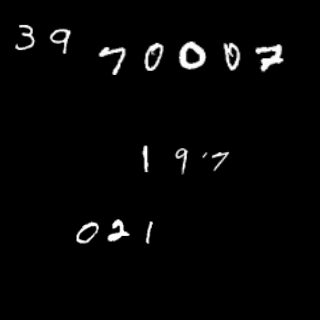 39
70007
197
021